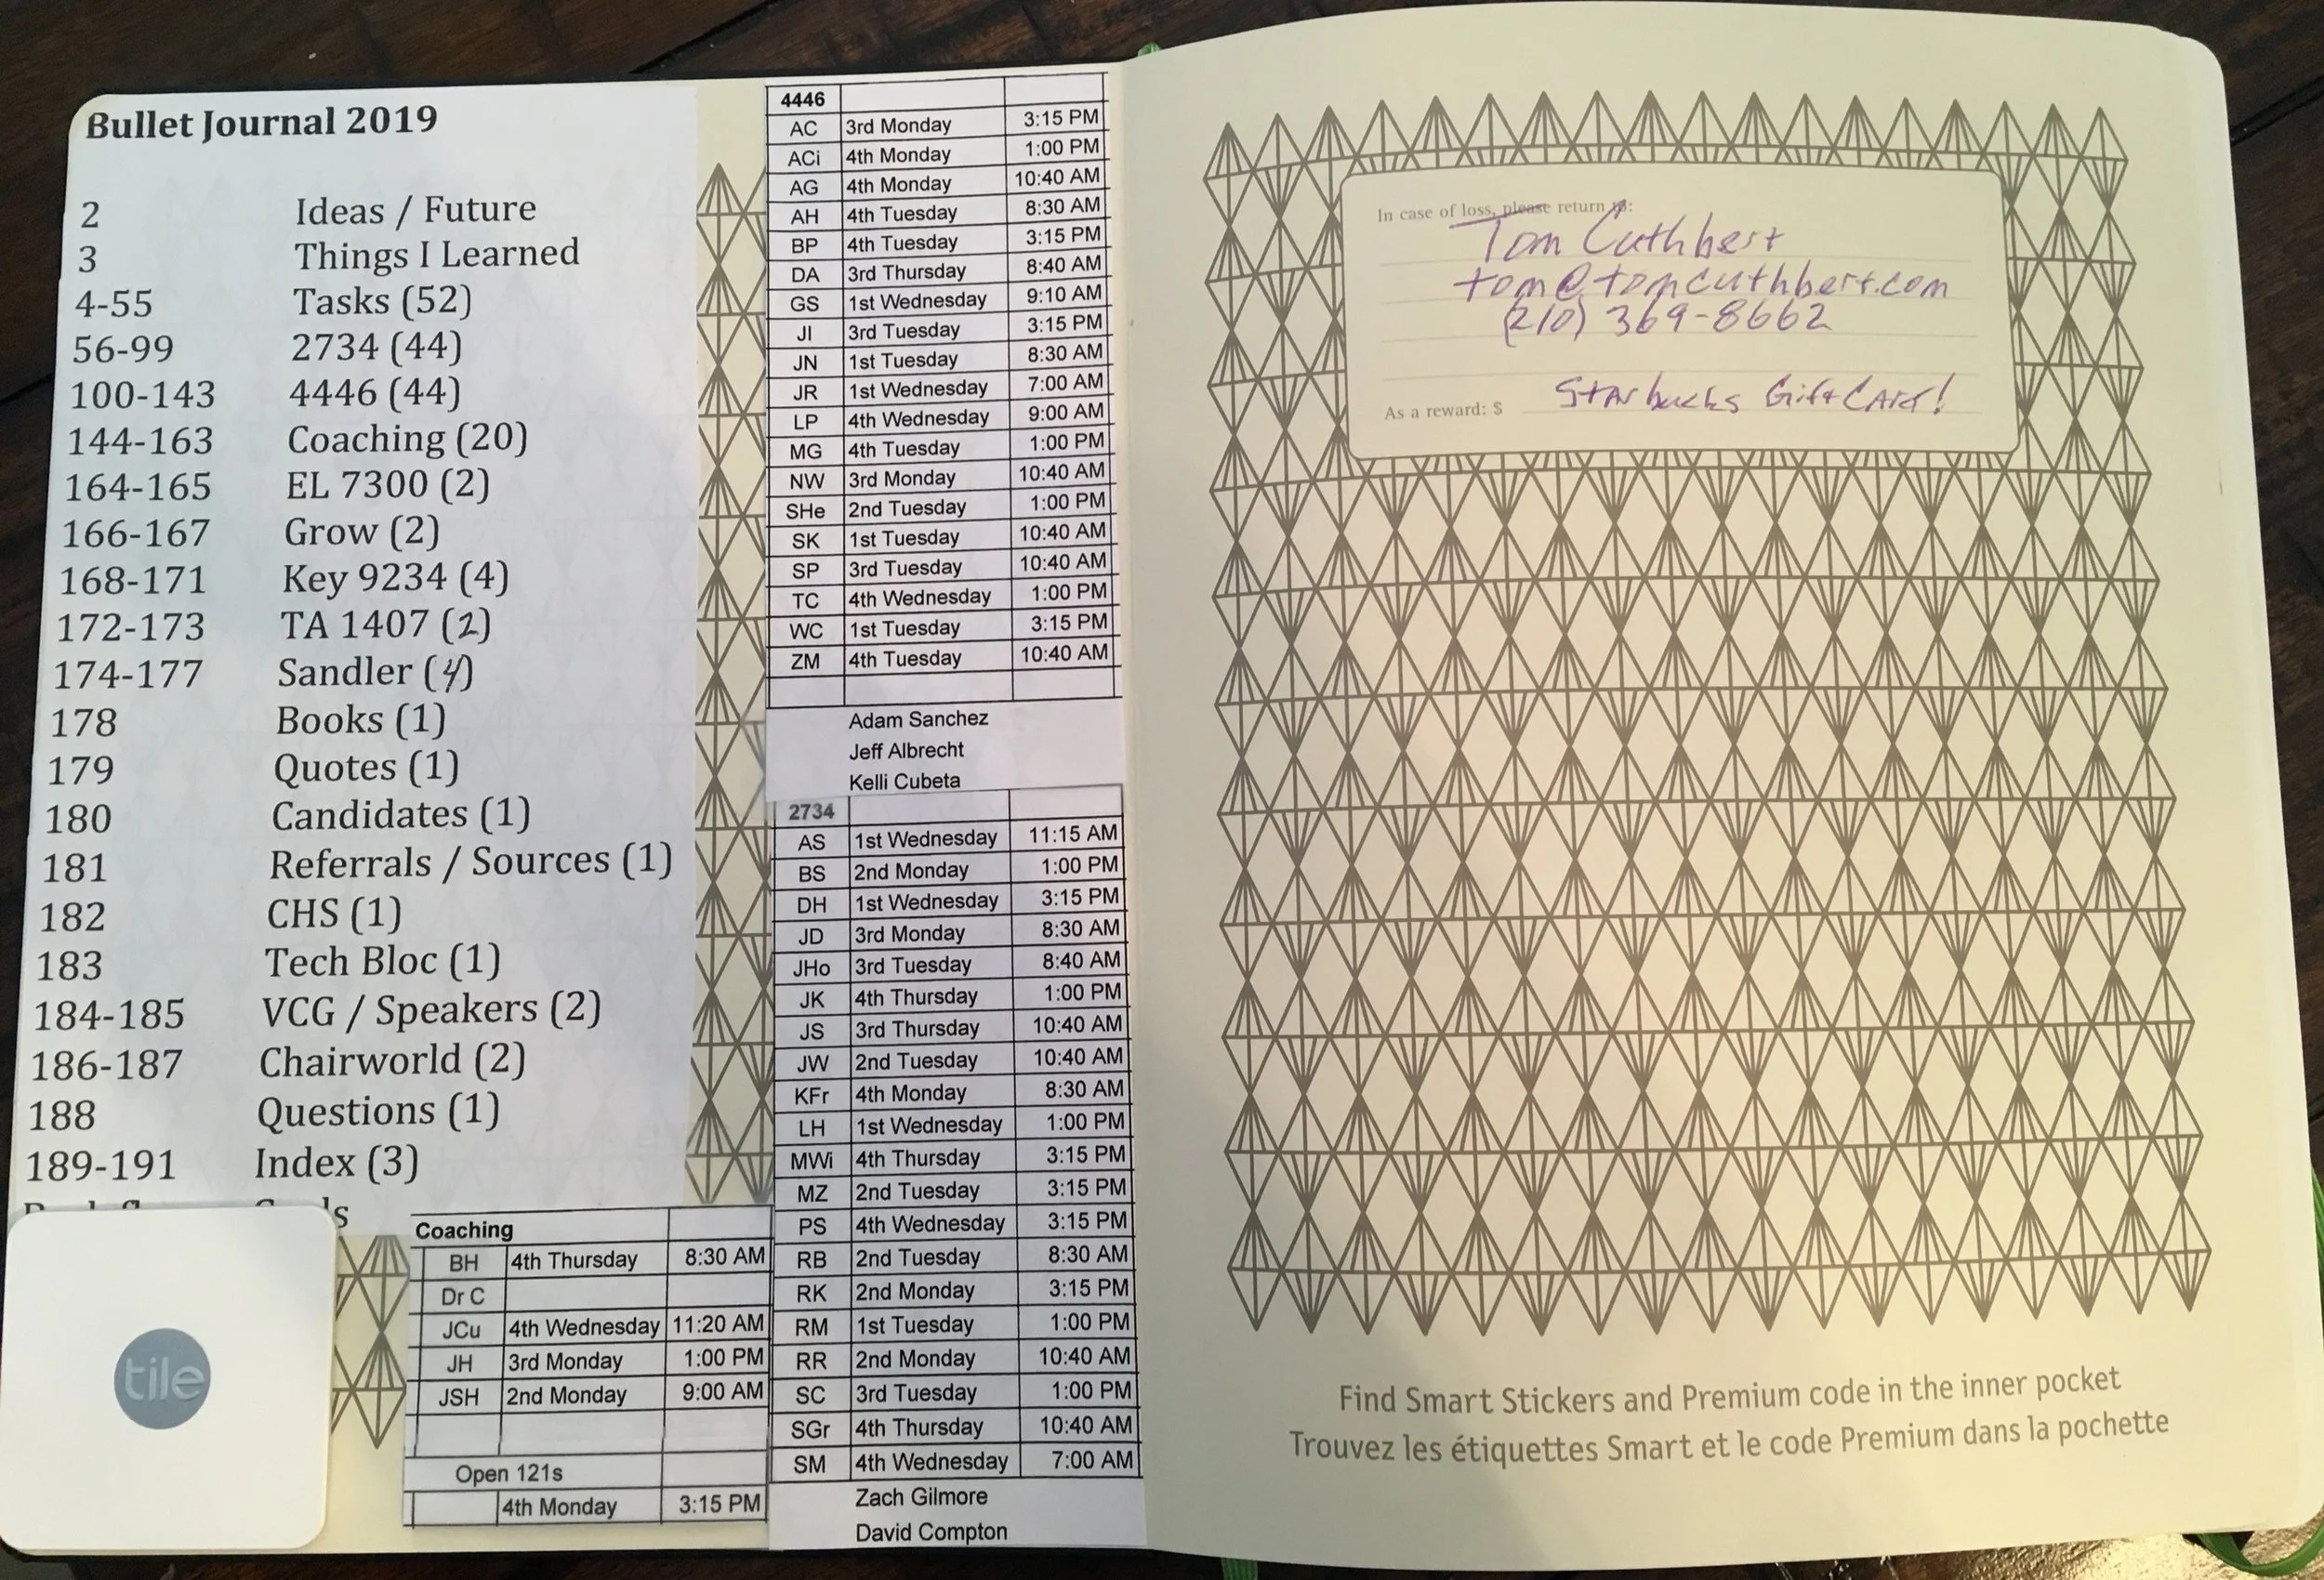 Bullet Journal 2019
2 Ideas / Future
3 Things I Learned
4-55 Tasks (52)
56-99 2734 (44)
100-143 4446 (44)
144-163 Coaching (20)
164-165 EL 7300 (2)
166-167 Grow (2)
168-171 Key 9234 (4)
172-173 TA 1407 (2)
174-177 Sandler (4)
178 Books (1)
179 Quotes (1)
180 Candidates (1)
181 Referrals / Sources (1)
182 CHS (1)
183 Tech Bloc (1)
184-185 VCG / Speakers (2)
186-187 Chairworld (2)
188 Questions (1)
189-191 Index (3)
tile
Coaching
BH 4th Thursday 8:30 AM
Dr C
JCu 4th Wednesday 11:20 AM
JH 3rd Monday 1:00 PM
JSH 2nd Monday 9:00 AM
Open 121s
4th Monday 3:15 PM
4446
AC 3rd Monday 3:15 PM
ACi 4th Monday 1:00 PM
AG 4th Monday 10:40 AM
AH 4th Tuesday 8:30 AM
BP 4th Tuesday 3:15 PM
DA 3rd Thursday 8:40 AM
GS 1st Wednesday 9:10 AM
JI 3rd Tuesday 3:15 PM
JN 1st Tuesday 8:30 AM
JR 1st Wednesday 7:00 AM
LP 4th Wednesday 9:00 AM
MG 4th Tuesday 1:00 PM
NW 3rd Monday 10:40 AM
SHe 2nd Tuesday 1:00 PM
SK 1st Tuesday 10:40 AM
SP 3rd Tuesday 10:40 AM
TC 4th Wednesday 1:00 PM
WC 1st Tuesday 3:15 PM
ZM 4th Tuesday 10:40 AM
Adam Sanchez
Jeff Albrecht
Kelli Cubeta
2734
AS 1st Wednesday 11:15 AM
BS 2nd Monday 1:00 PM
DH 1st Wednesday 3:15 PM
JD 3rd Monday 8:30 AM
JHo 3rd Tuesday 8:40 AM
JK 4th Thursday 1:00 PM
JS 3rd Thursday 10:40 AM
JW 2nd Tuesday 10:40 AM
KFr 4th Monday 8:30 AM
LH 1st Wednesday 1:00 PM
MWi 4th Thursday 3:15 PM
MZ 2nd Tuesday 3:15 PM
PS 4th Wednesday 3:15 PM
RB 2nd Tuesday 8:30 AM
RK 2nd Monday 3:15 PM
RM 1st Tuesday 1:00 PM
RR 2nd Monday 10:40 AM
SC 3rd Tuesday 1:00 PM
SGr 4th Thursday 10:40 AM
SM 4th Wednesday 7:00 AM
Zach Gilmore
David Compton
In case of loss, please return to:
Tom Cuthbert
tom@tomcuthbert.com
(210) 369-8662
As a reward: $ Starbucks Gift CARd!
Find Smart Stickers and Premium code in the inner pocket
Trouvez les étiquettes Smart et le code Premium dans la pochette